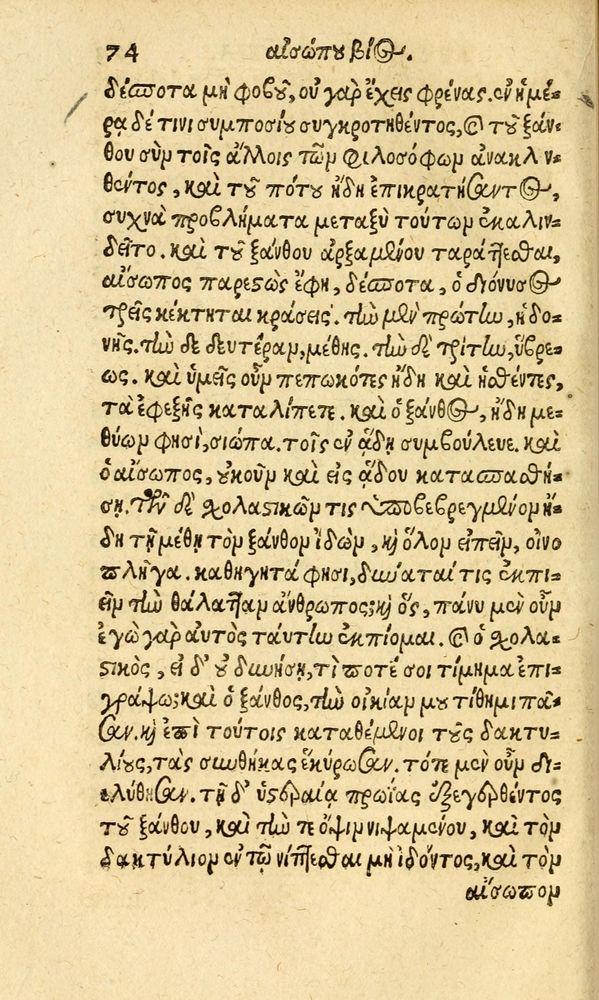 74 αἰσώπου βίος.
δέσποτα μὴ φοβοῦ, οὐ γὰρ ἔχεις φρένας. ἐν ἡμέ-
ρᾳ δέ τινι συμποσίου συγκροτηθέντος, καὶ τοῦ ξάν-
θου σὺν τοῖς ἄλλοις τῶν φιλοσόφων ἀνακλιν-
θέντος, καὶ τοῦ πότου ἤδη ἐπικρατήσαντος,
συχνὰ προβλήματα μεταξὺ τούτων ἐκαλιν-
δεῖτο. καὶ τοῦ ξάνθου ἀρξαμένου ταράττεσθαι,
αἴσωπος παρεστὼς ἔφη, δέσποτα, ὁ διόνυσος
τρεῖς κέκτηται κράσεις. τὴν μὲν πρώτην, ἡδο-
νῆς. τὴν δὲ δευτέραν, μέθης. τὴν δὲ τρίτην, ὕβρε-
ως. καὶ ὑμεῖς οὖν πεπωκότες ἤδη καὶ ἡσθέντες,
τὰ ἐφεξῆς καταλίπετε. καὶ ὁ ξάνθος, ἤδη με-
θύων φησὶ, σιώπα. τοῖς ἐν ᾅδῃ συμβούλευε. καὶ
ὁ αἴσωπος, οὐκοῦν καὶ εἰς ᾅδου κατασπασθή-
σῃ. τῶν δὲ σχολαστικῶν τις ὑποβεβρεγμένον ἤ-
δη τῇ μέθῃ τὸν ξάνθον ἰδὼν, καὶ ὅλον εἰπεῖν, οἰνο
πλῆγα. καθηγητά φησι, δύναταί τις ἐκπι-
εῖν τὴν θάλατταν ἄνθρωπος; καὶ ὃς, πάνυ μὲν οὖν
ἐγὼ γὰρ αὐτὸς ταύτην ἐκπίομαι. καὶ ὁ σχολα-
στικὸς, εἰ δ' οὐ δυνήσῃ, τί ποτέ σοι τίμημα ἐπι-
γράψω; καὶ ὁ ξάνθος, τὴν οἰκίαν μου τίθημι πᾶ-
σαν. καὶ ἐπὶ τούτοις καταθέμενοι τοὺς δακτυ-
λίους, τὰς συνθήκας ἐκύρωσαν. τότε μὲν οὖν δι-
ελύθησαν. τῇ δ' ὑστεραίᾳ πρωΐας ἐξεγερθέντος
τοῦ ξάνθου, καὶ τήν τε ὄψιν νιψαμένου, καὶ τὸν
δακτύλιον ἐν τῷ νίπτεσθαι μὴ ἰδόντος, καὶ τὸν
αἴσωπον